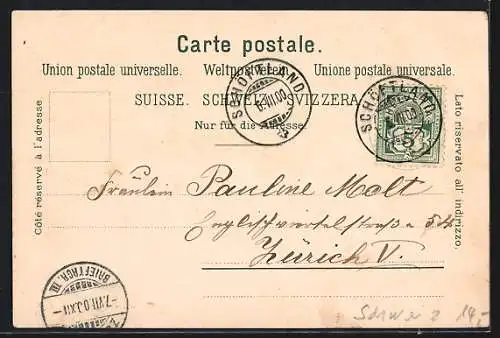 Carte postale.
Union postale universelle. Weltpostverein. Unione postale universale.
SUISSE. SCHWEIZ. SVIZZERA.
Nur für die Adresse.
Côté réservé à l'adresse.
Lato riservato all' indirizzo.
SCHÖFTLAND
SCHÖFTLAND
Fräulein Pauline Molt
Englischviertelstraße 54
Zürich V.
BRIEFTRGR. III
14,-